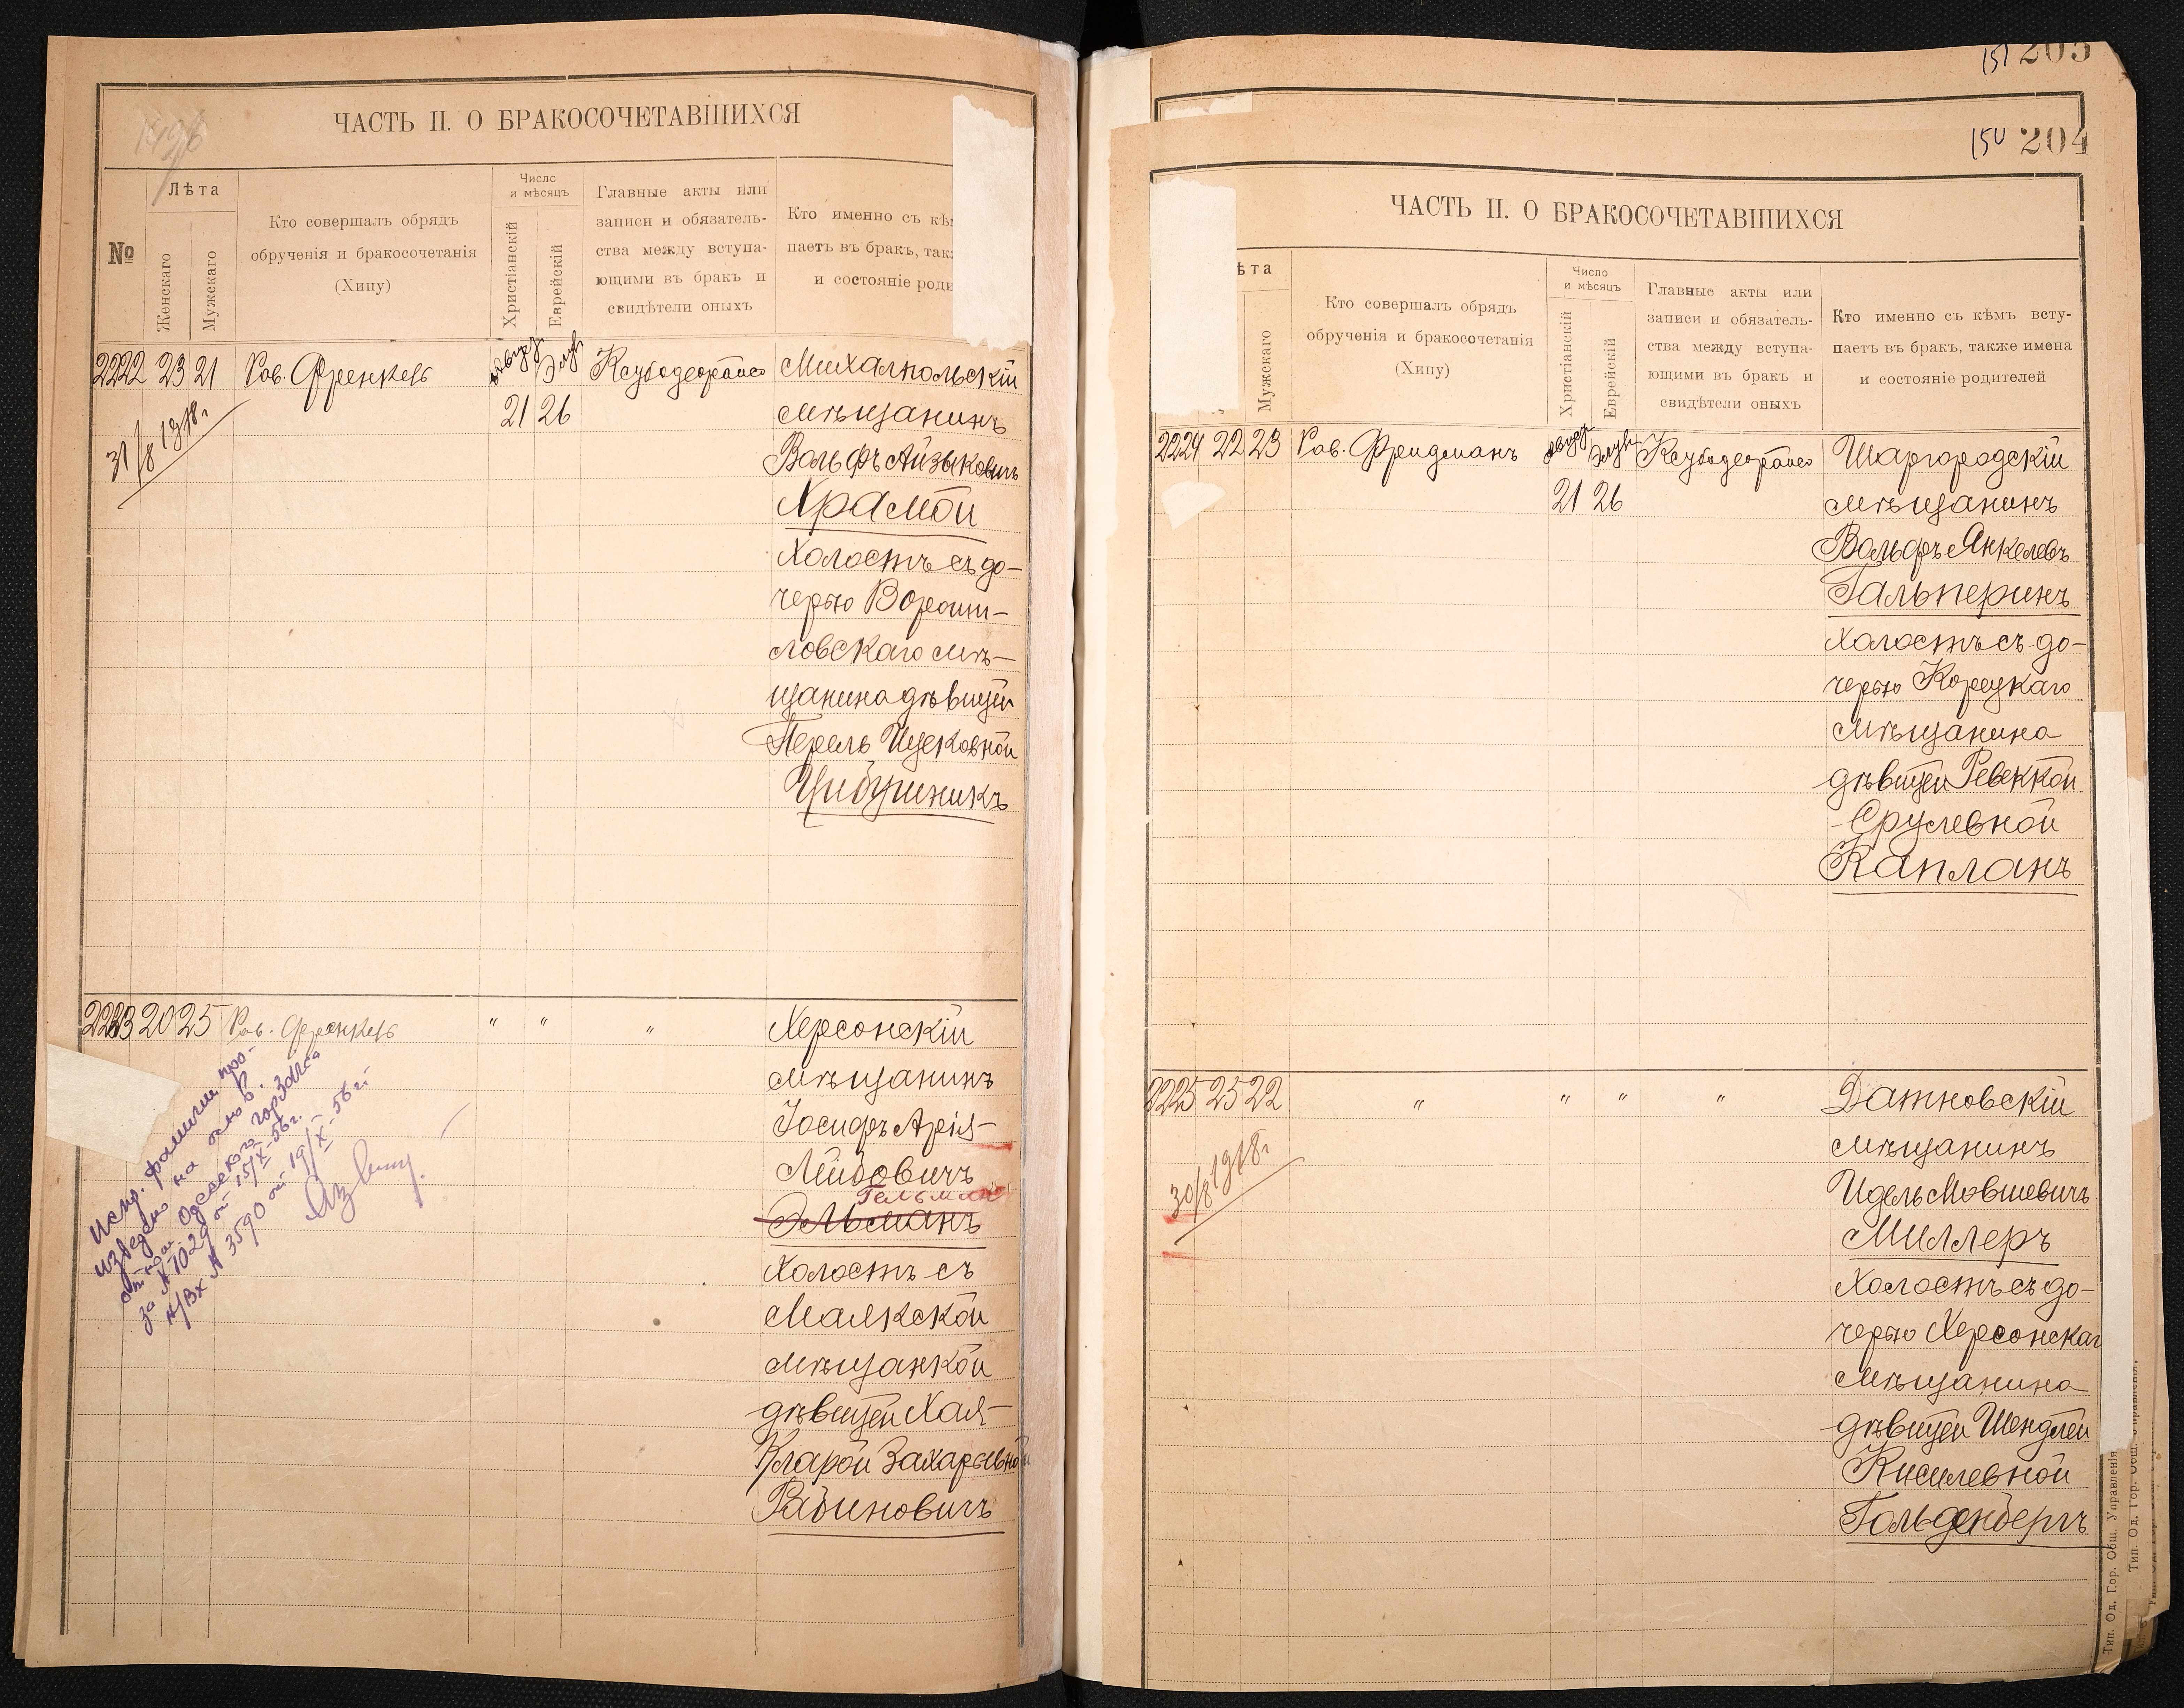 1496
ЧАСТЬ II. О БРАКОСОЧЕТАВШИХСЯ
№
Лѣта
Женскаго
Мужскаго
Кто совершалъ обрядъ
обрученія и бракосочетанія
(Хипу)
Число
и мѣсяцъ
Христіанскій
Еврейскій
Главные акты или
записи и обязатель-
ства между вступа-
ющими въ бракъ и
свидѣтели оныхъ
Кто именно съ кѣм
паетъ въ бракъ, так
и состояніе роди
2222 23 21 Рав. Френкель
Август Элул
21 26
31/8 1918 г.
Михалпольскій
мѣщанинъ
Вольфъ Айзыковичъ
Храмой
холостъ съ до-
черью Вороши-
ловскаго мѣ-
щанина дѣвицей
Перель Ицековной
Цибушникъ
2223 20 25 Рав. Френкель " " "
Херсонскій
мѣщанинъ
Іосифъ Арія-
Лейбовичъ
Гельман
Эльманъ
холостъ съ
Маякской
мѣщанкой
дѣвицей Хая-
Кларой Захарьевной
Рабиновичъ
Испр. фамилии про-
изведено на основ.
отнош. Одесского горЗАГСа
за № 1029 от 15/X-56 г.
н/Вх № 3590 от 19/X-56 г.
151 205
150 204
ЧАСТЬ II. О БРАКОСОЧЕТАВШИХСЯ
ѣта
Мужскаго
Кто совершалъ обрядъ
обрученія и бракосочетанія
(Хипу)
Число
и мѣсяцъ
Христіанскій
Еврейскій
Главные акты или
записи и обязатель-
ства между вступа-
ющими въ бракъ и
свидѣтели оныхъ
Кто именно съ кѣмъ всту-
паетъ въ бракъ, также имена
и состояніе родителей
2224 22 23 Рав. Фридманъ
Август Элул
21 26
Шаргородскій
мѣщанинъ
Вольфъ Янкелевъ
Гальперинъ
холостъ съ до-
черью Корецкаго
мѣщанина
дѣвицей Ревеккой
Срулевной
Капланъ
2225 25 22 " " " "
30/8 1918 г.
Датновскій
мѣщанинъ
Идель Мовшевичъ
Миллеръ
холостъ съ до-
черью Херсонскаг
мѣщанина
дѣвицей Шендлей
Кисилевной
Гольденбергъ
Тип. Од. Гор. Общ. Управленія
Тип. Од. Гор. Общ. Управленія.